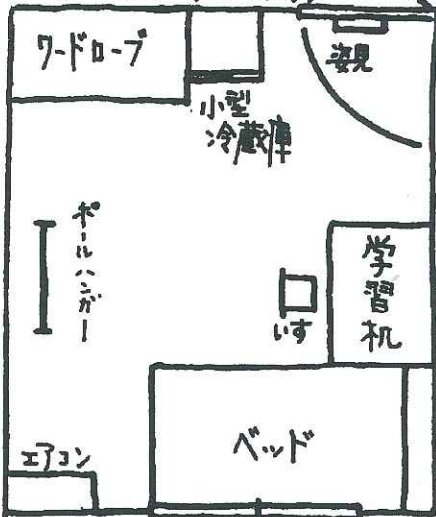 ワードローブ
小型
冷蔵庫
姿見
ポールハンガー
学習机
いす
ベッド
エアコン